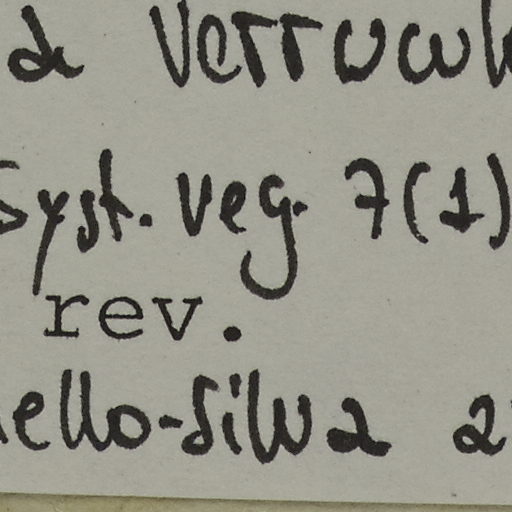 a Verrucul
Syst. Veg. 7(1)
rev.
ello-Silva 2